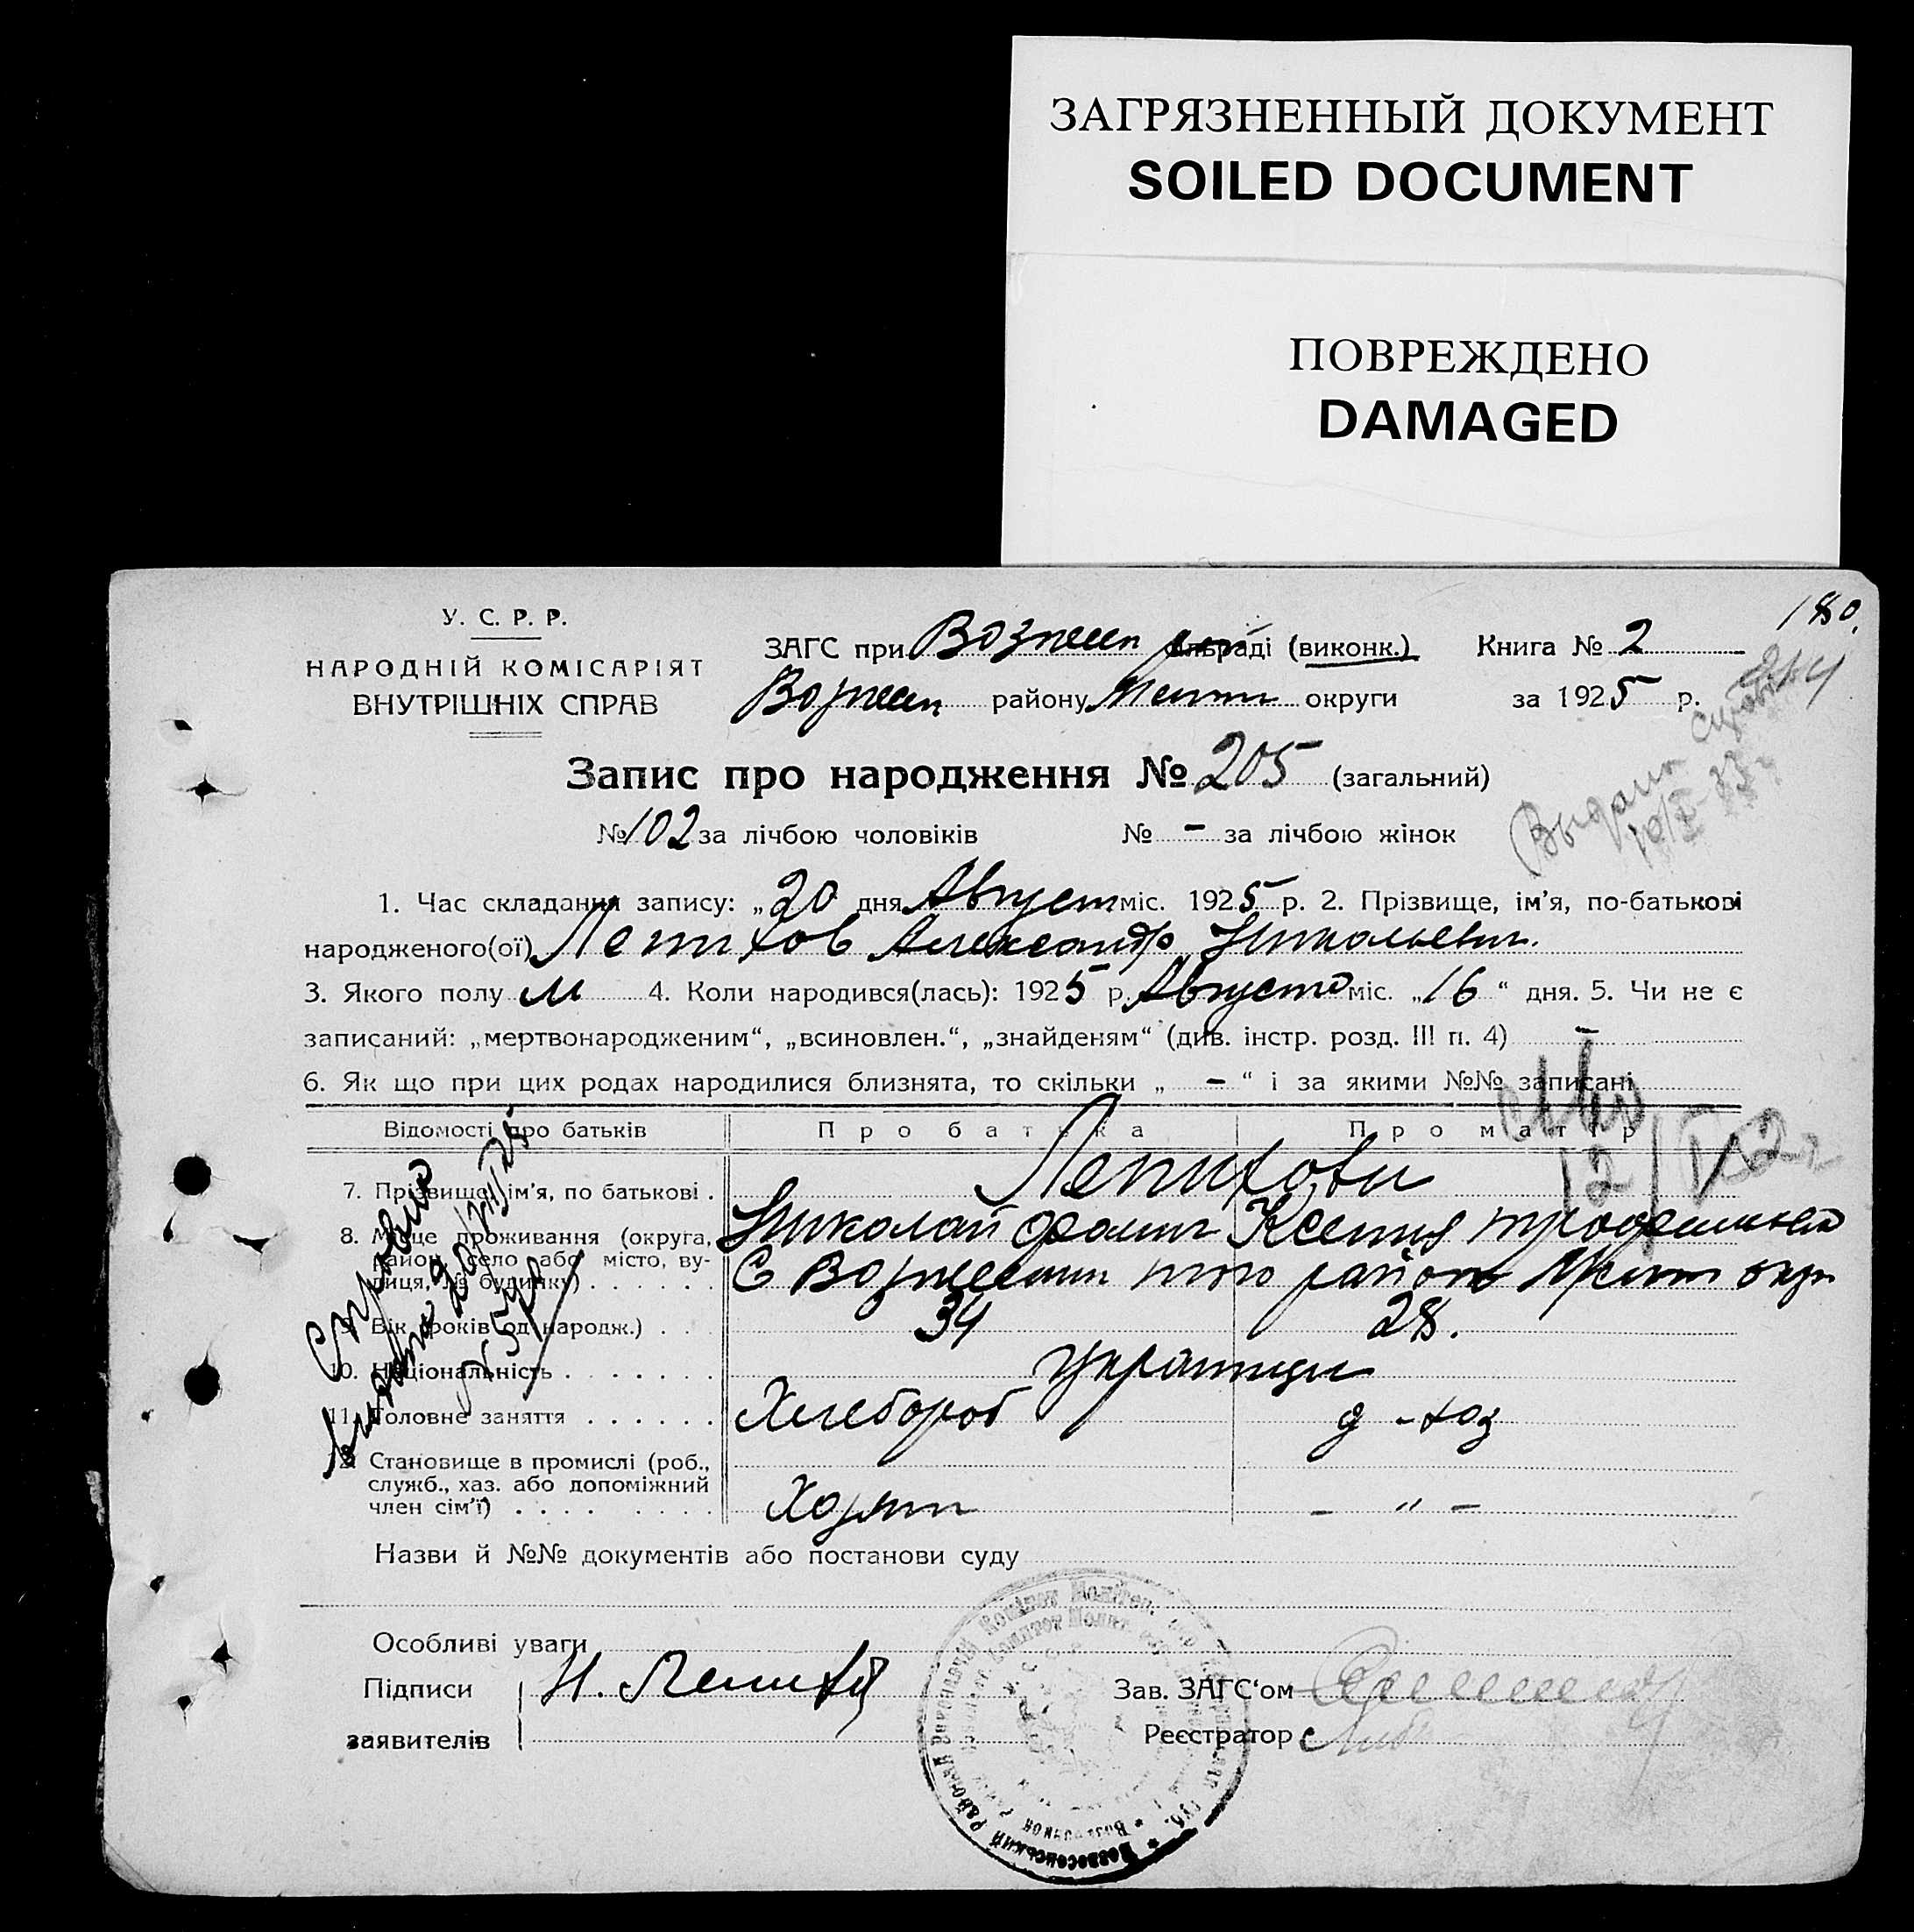 ЗАГРЯЗНЕННЫЙ ДОКУМЕНТ
SOILED DOCUMENT
ПОВРЕЖДЕНО
DAMAGED
180.
У. С. Р. Р.
НАРОДНІЙ КОМІСАРІЯТ
ВНУТРІШНІХ СПРАВ
ЗАГС при Вознесен сільраді (виконк.) Книга № 2
Вознесен району округи за 1925 р.
Запис про народження № 205 (загальний)
№ 102 за лічбою чоловіків № - за лічбою жінок
Выдана
1. Час складання запису: „20 дня Август міс. 1925 р. 2. Прізвище, ім'я, по-батькові
народженого(ої) Лепихов Александр Николаевич.
3. Якого полу м 4. Коли народився(лась): 1925 р. Августа міс. „16“ дня. 5. Чи не є
записаний: „мертвонародженим“, „всиновлен.“, „знайденям“ (див. інстр. розд. III п. 4) -
6. Як що при цих родах народилися близнята, то скільки „ - “ і за якими №№ записані
Відомості про батьків Про батька Про матір
7. Прізвище, ім'я, по батькові . Лепиховы
8. Місце проживання (округа, Николай Фомич Ксения Трофимовна
район, село або місто, ву-
лиця, № будинку) . . . . . . С Вознесенка того району окр
9. Вік (років од народж.) . . . 34 28.
10. Національність . . . . . . . украинцы
11. Головне заняття . . . . . . Хлебороб д-хоз
12. Становище в промислі (роб.,
служб., хаз. або допоміжний
член сім'ї) . . . . . . . . Хозяин - „ -
Справка
выдана
Назви й №№ документів або постанови суду
Особливі уваги
Підписи Н. Лепихов Зав. ЗАГС'ом
заявителів Реєстратор